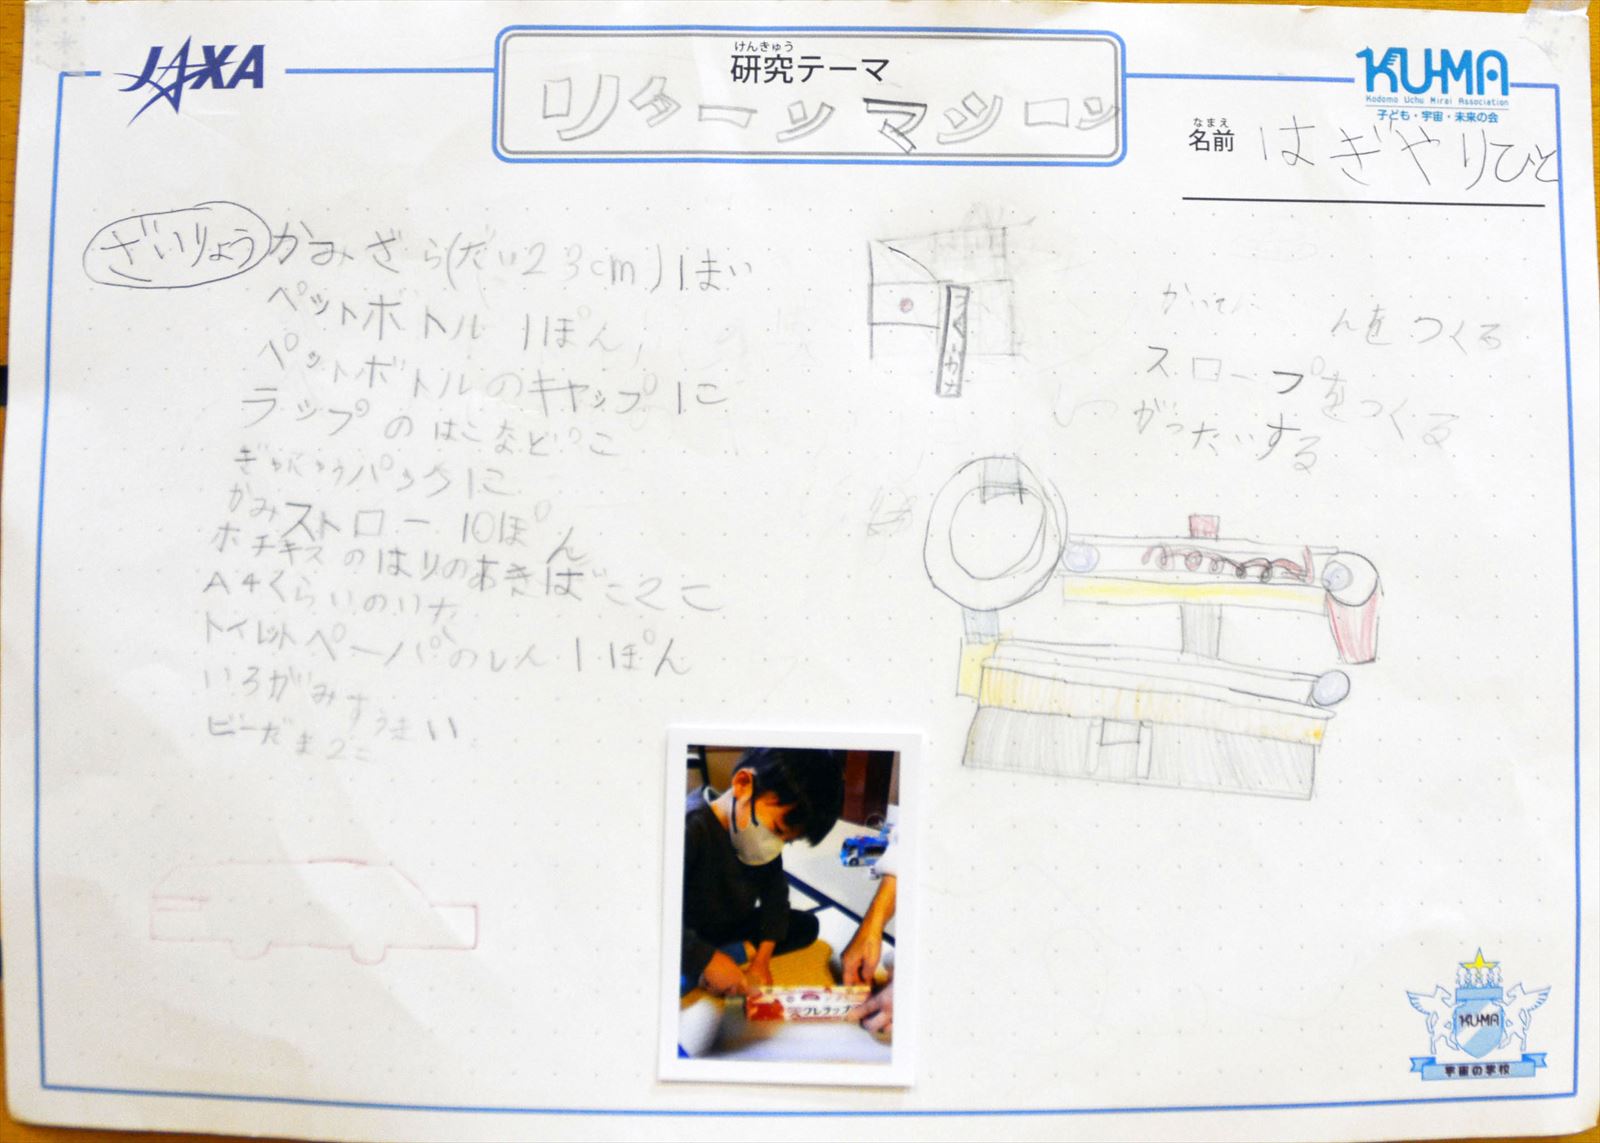 JAXA
けんきゅう
研究テーマ
リターンマシーン
KU-MA
Kodomo Uchu Mirai Association
子ども・宇宙・未来の会
なまえ
名前
はぎやりひと
ざいりょう かみざら(だい23cm)1まい
ペットボトル 1ぽん
ペットボトルのキャップ1こ
ラップのはこなど
ぎゅにゅうパック1こ
かみストロー 10ぽん
ホチキスのはりのあきばこ2こ
A4くらいのいた
トイレットペーパーのしん 1ぽん
いろがみすうまい
ビーだま2こ
つくりかた
んをつくる
スロープをつくる
がったいする
クレラップ
KU-MA
宇宙の学校